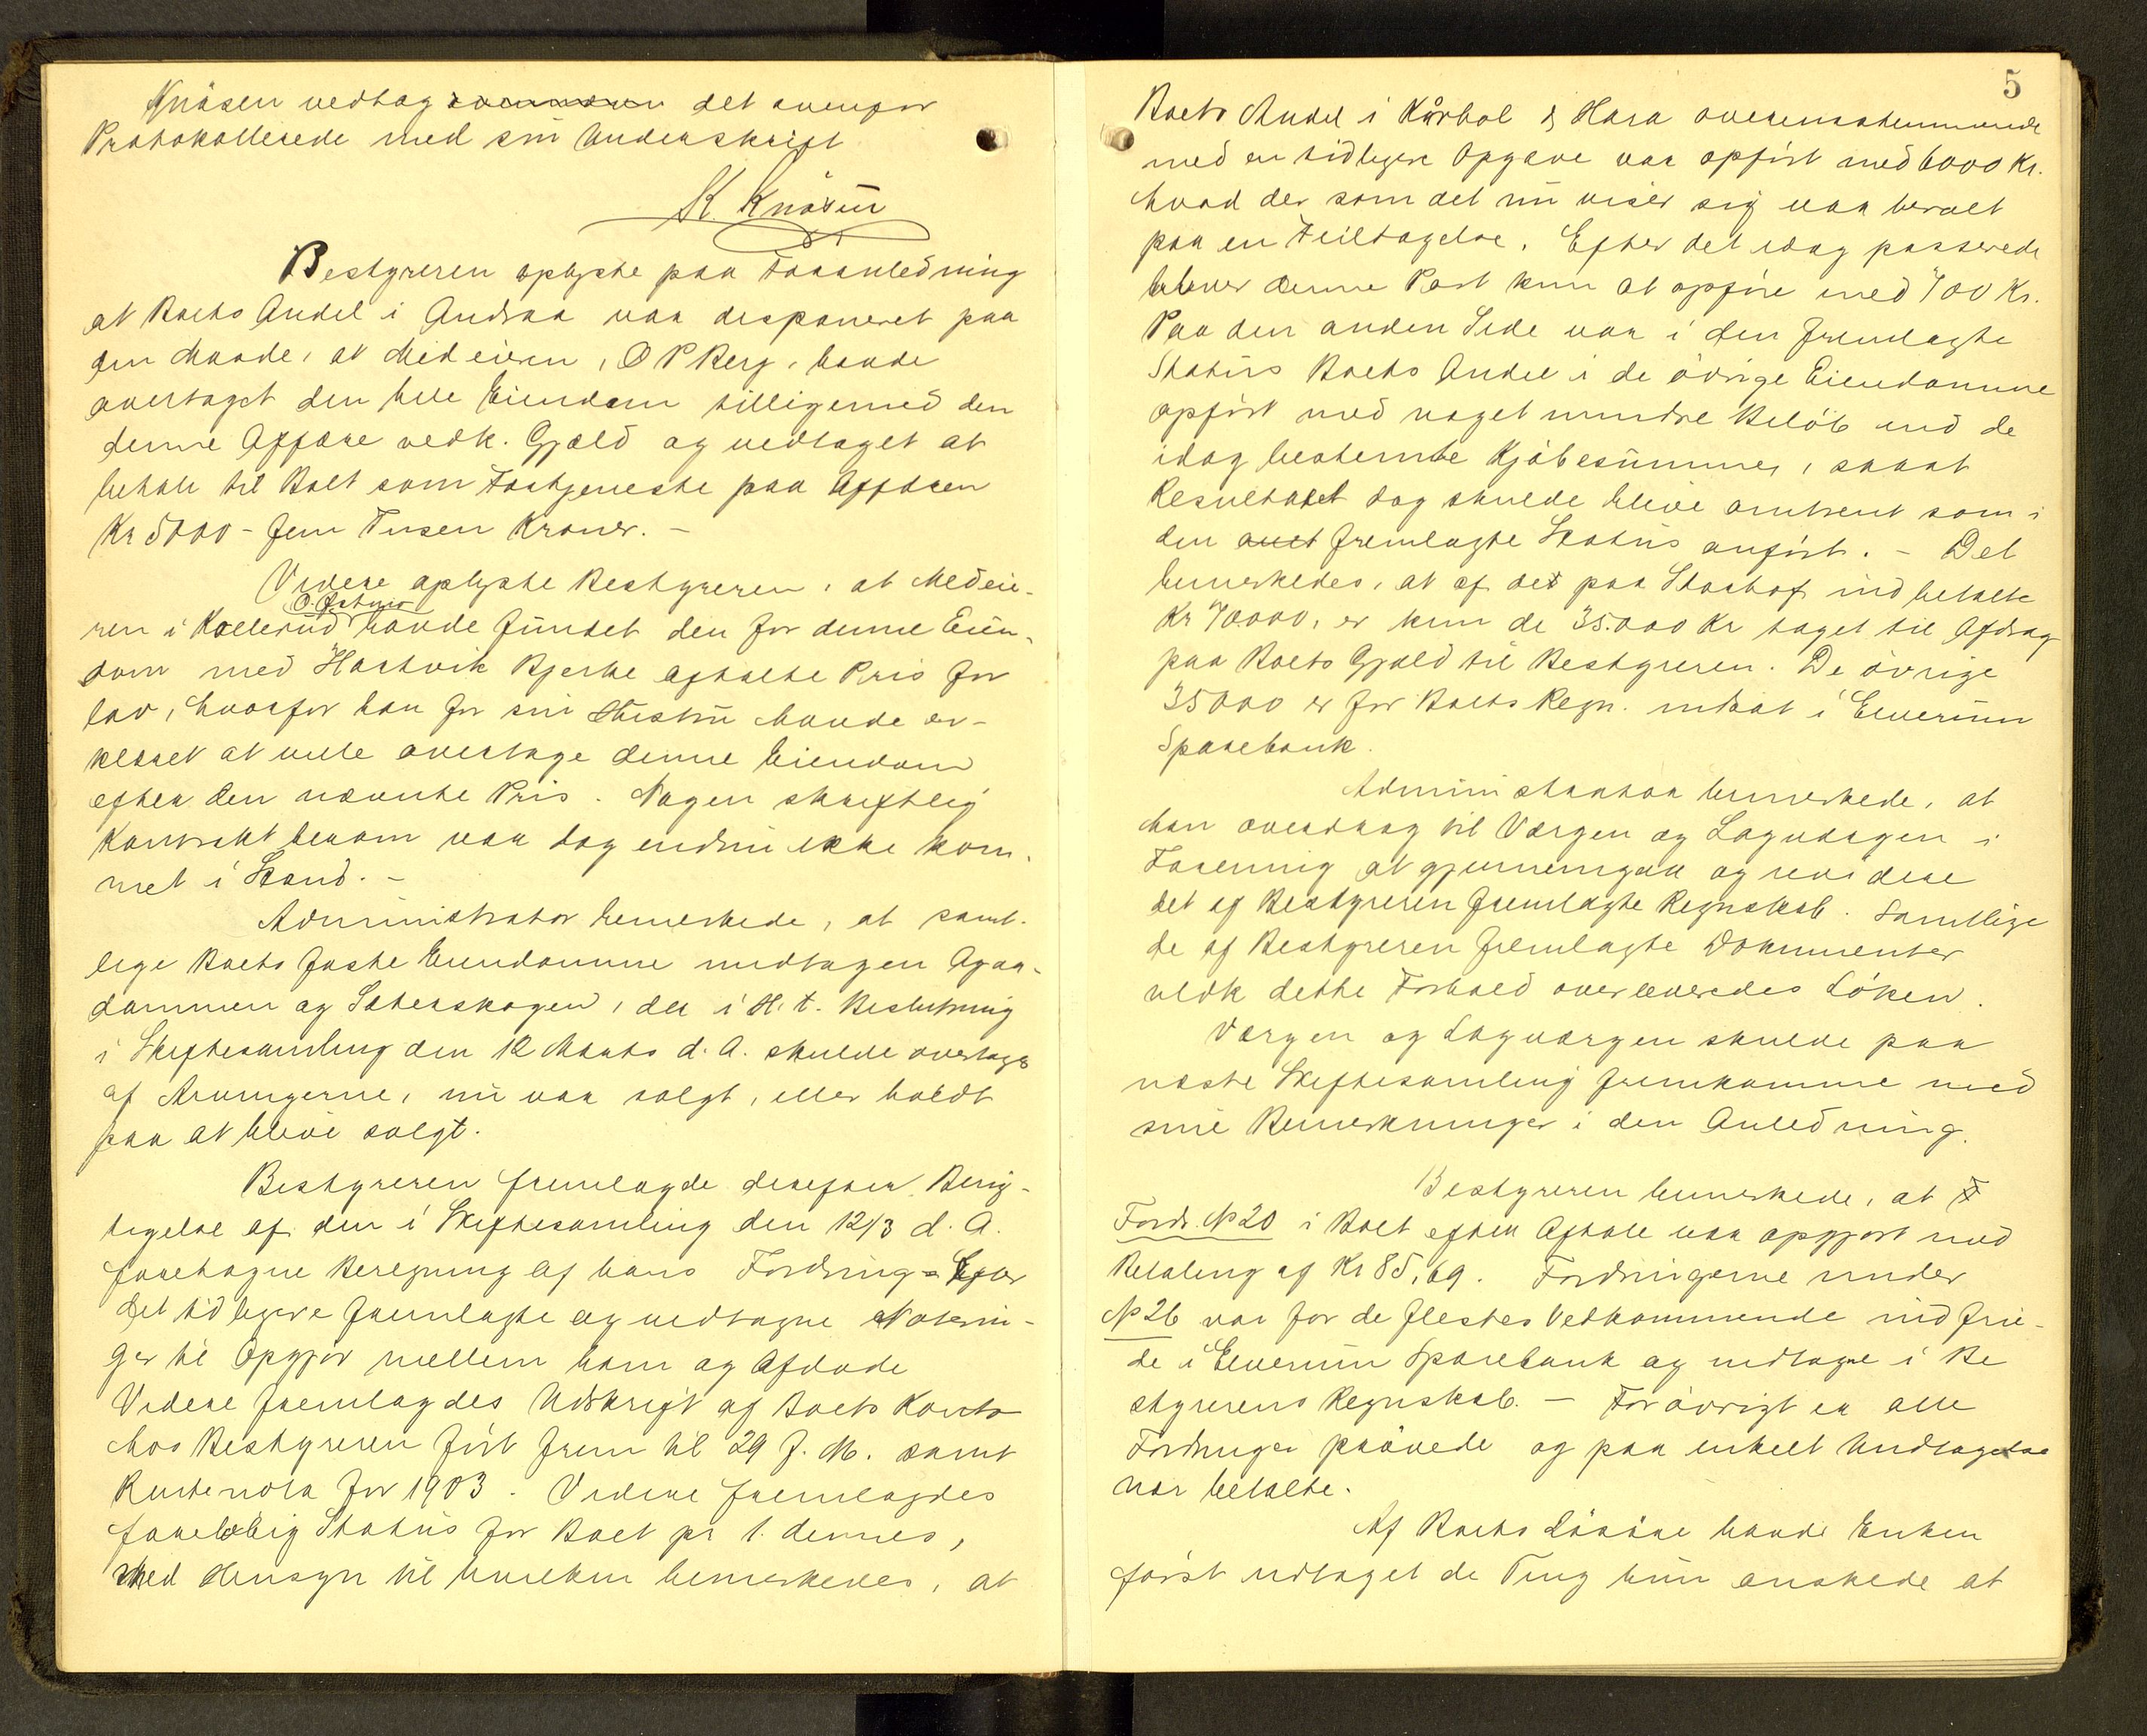 Knåsen vedtog det ovenfor
Protokollerede med sin Underskrift
K. Knåsen
Bestyreren oplyste paa Foranledning
at Boets Andel i Andraa var disponeret paa
den Maade, at Medeieren, O P Berg, havde
overtaget den hele Eiendom tilligemed den
denne Affære vedk. Gjæld og vedtaget at
betale til Boet som Fortjeneste paa Affæren
Kr 5000 - fem Tusen Kroner. -
Videre oplyste Bestyreren, at Medeie-
O. Østmo
ren i Kollerud havde fundet den for denne Eien-
dom med Hartvik Bjerke aftalte Pris for
lav, hvorfor han for sin Hustru havde er-
klæret at ville overtage denne Eiendom
efter den nævnte Pris. Nogen skriftlig
Kontrakt herom var dog endnu ikke kom-
met i Stand. -
Administrator bemerkede, at samt-
lige Boets faste Eiendomme undtagen Agaa-
dammen og Sæterskogen, der i H. t. Beslutning
i Skiftesamling den 12 Marts d. A. skulde overtages
af Arvingerne, nu var solgt, eller holdt
paa at blive solgt.
Bestyreren fremlagde derefter Berig-
tigelse af den i Skiftesamling den 12/3 d. A.
foretagne Beregning af hans Fordring - Efter
det tidligere fremlagte og vedtagne Noterin-
ger til Opgjør mellem ham og Afdøde
Videre fremlagdes Udskrift af Boets Konto
hos Bestyreren ført frem til 29 f. M. samt
Rentenota for 1903. Videre fremlagdes
foreløbig Status for Boet pr 1. dennes,
Med Hensyn til hvilken bemerkedes, at
5
Boets Andel i Kårbøl & Hara overensstemmende
med en tidligere Opgave var opført med 6000 Kr.
hvad der som det nu viser sig var beroet
paa en Feiltagelse. Efter det idag passerede
bliver denne Post kun at opføre med 700 Kr.
Paa den anden Side var i den fremlagte
Status Boets Andel i de øvrige Eiendomme
opført med noget mindre Beløb end de
idag bestemte Kjøbesummer, saaat
Resultatet dog skulde blive omtrent som i
den fremlagte Status anført. - Det
bemerkedes, at af det paa Starhof indbetalte
Kr 70.000, er kun de 35.000 Kr taget til Afdrag
paa Boets Gjæld til Bestyreren. De øvrige
35000 er for Boets Regn. indsat i Elverum
Sparebank.
Administrator bemerkede, at
han overdrog til Værgen og Lagværgen i
Forening at gjennemgaa og revidere
det af Bestyreren fremlagte Regnskab. Samtlige
de af Bestyreren fremlagte Dokumenter
vedk dette Forhold overleveredes Løken.
Værgen og Lagværgen skulde paa
næste Skiftesamling fremkomme med
sine Bemerkninger i den Anledning.
Bestyreren bemerkede, at
Fordr. No 20 i Boet efter Aftale var opgjort med
Betaling af Kr 85,69. Fordringerne under
No 26 var for de flestes Vedkommende indfrie-
de i Elverum Sparebank og indtagne i Be
styrerens Regnskab. - Forøvrigt er alle
Fordringer prøvede og paa enkelt Undtagelse
nær betalte.
Af Boets Løsøre havde Enken
først udtaget de Ting hun ønskede at